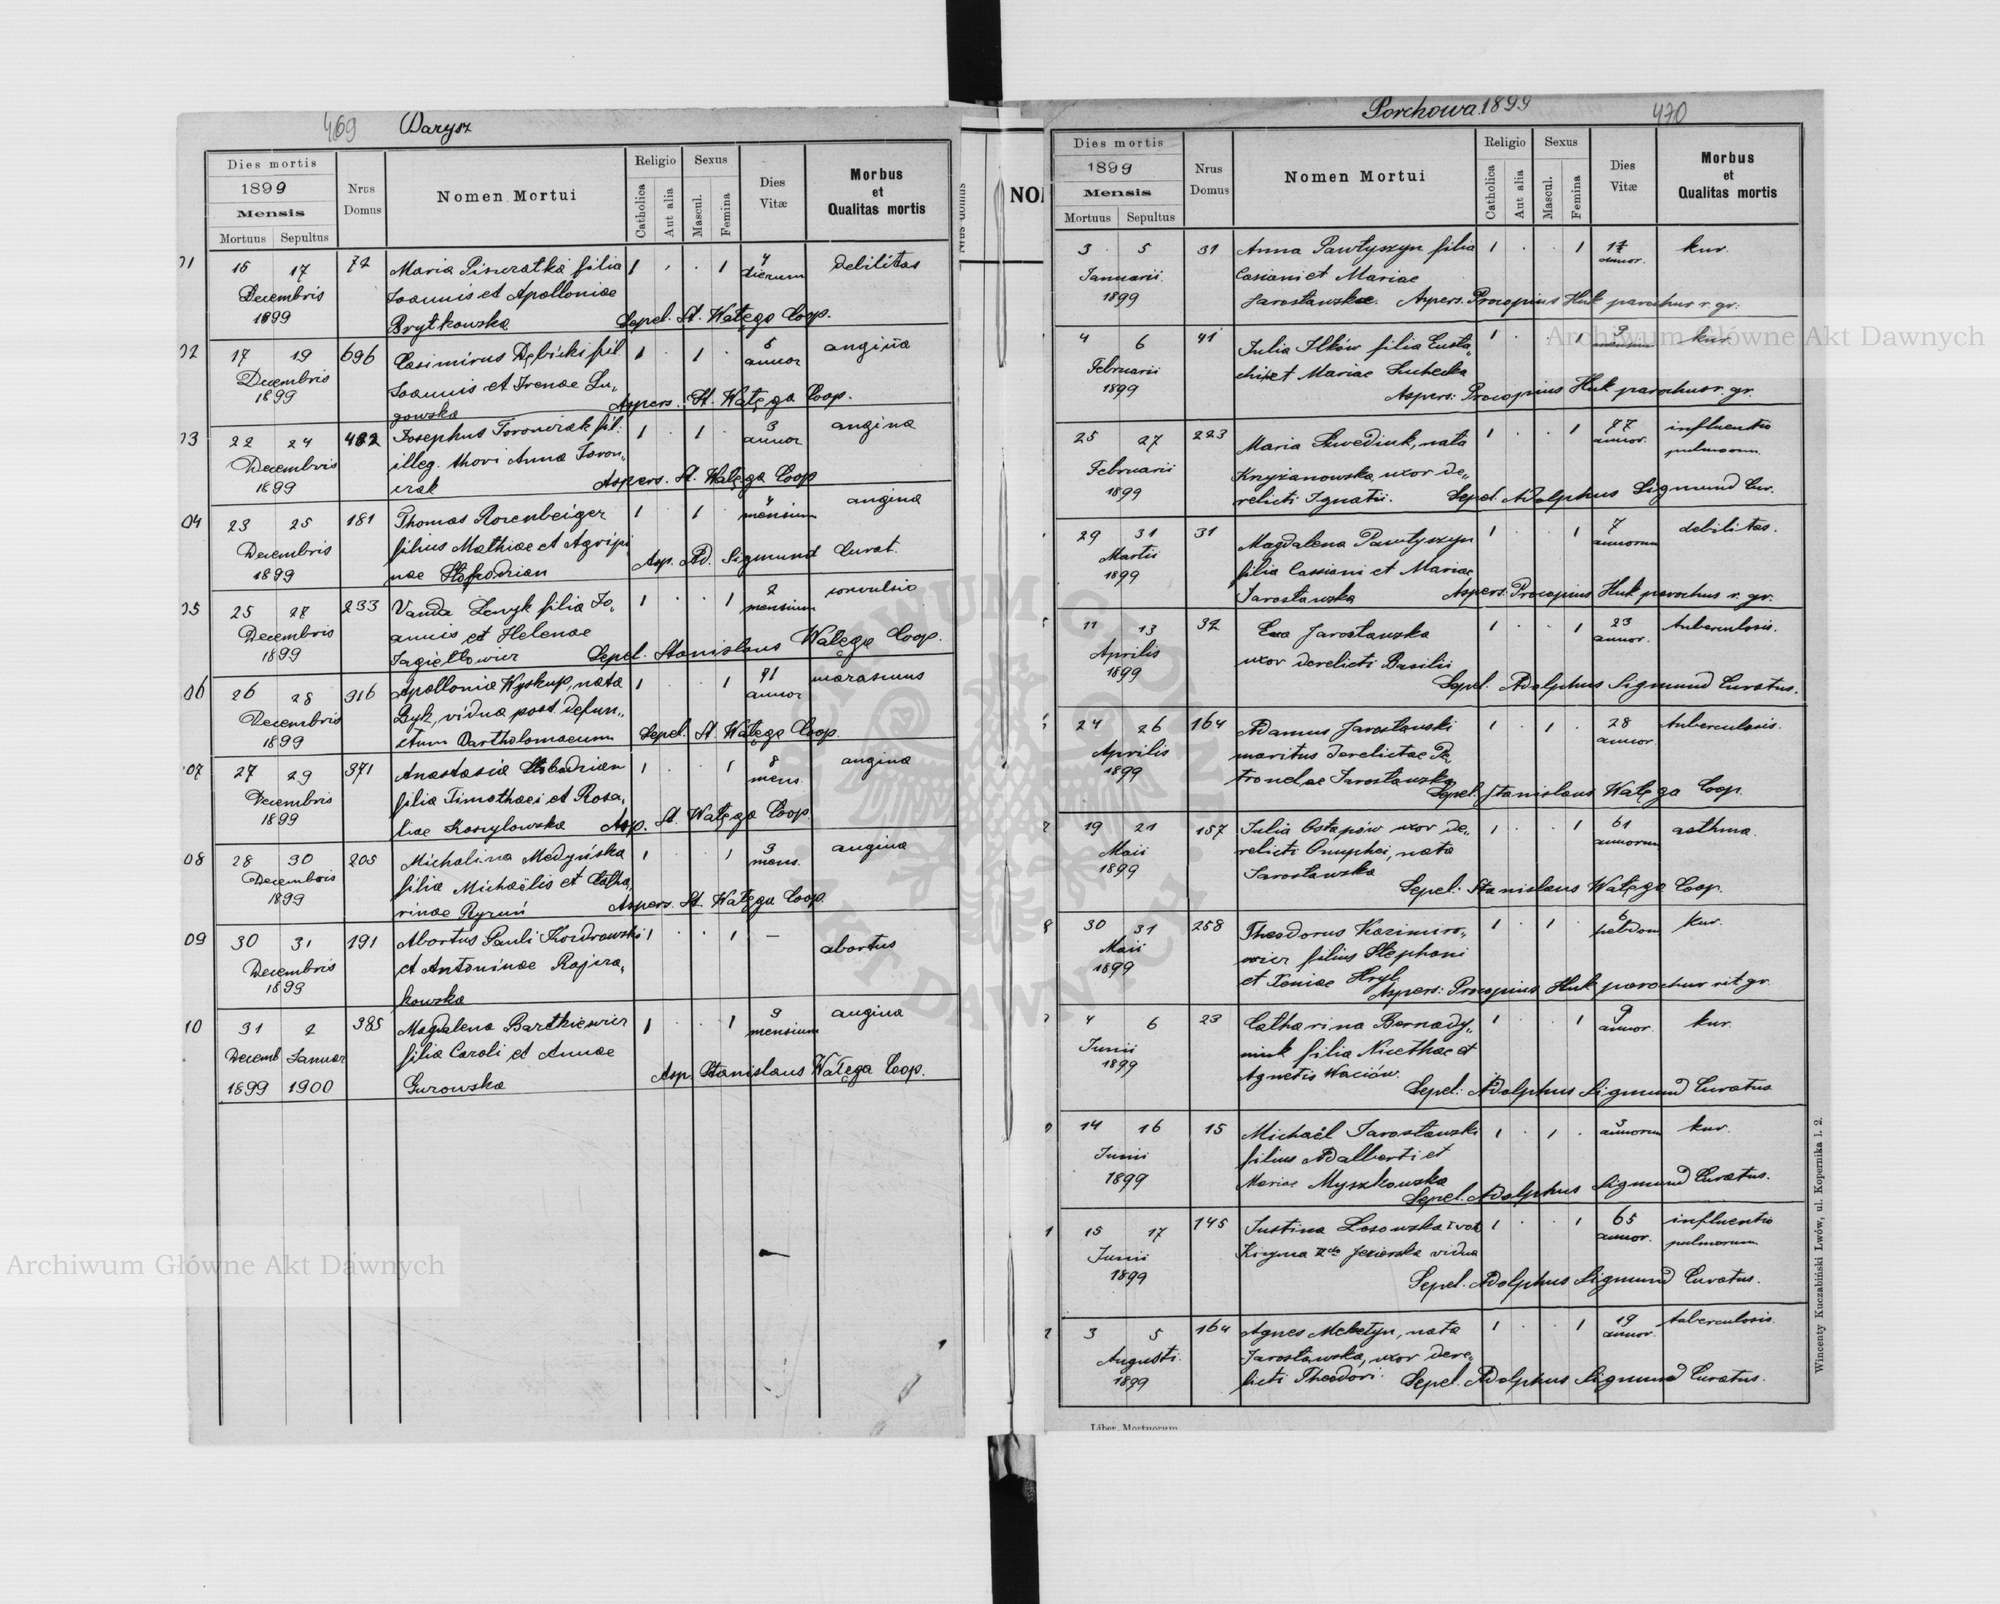 469 Barysz
Dies mortis
1899
Mensis
Mortuus Sepultus
Nrus Domus
Nomen Mortui
Religio
Catholica
Aut alia
Sexus
Mascul.
Femina
Dies Vitæ
Morbus et Qualitas mortis
01 15 17 72 Maria filia 1 . . 1 4 dierum debilitas
Decembris Joannis et Apolloniae
1899 Brytkowska Sepel. St. Wałęga Coop.
02 17 19 696 Casimirus Dębicki fil. 1 . 1 . 5 annor angina
Decembris Joannis et Irenae Gu„
1899 gowska Aspers. St. Wałęga Coop.
03 22 24 482 Josephus fil. 1 . 1 . 3 annor angina
Decembris illeg. thori Anna
1899 Aspers. St. Wałęga Coop
04 23 25 181 Thomas 1 . 1 . 4 mensium angina
Decembris filius Mathiae et Agripi
1899 nae Asp. Ad. Sigmund Curat.
05 25 27 233 Vanda filia Jo„ 1 . . 1 2 mensium convulsio
Decembris annis et Helenae
1899 Jagiełłowicz Sepel. Stanislaus Wałęga Coop.
06 26 28 916 Apollonia Wyskup, nata 1 . . 1 91 annor marasmus
Decembris Byk, vidua post defun„
1899 ctum Bartholomaeum Sepel. St. Wałęga Coop.
07 27 29 371 Anastasia filia 1 . . 1 8 mens. angina
Decembris filia Timothaei et Rosa„
1899 liae Koszylowska Asp. St. Wałęga Coop.
08 28 30 205 Michalina Medyńska 1 . . 1 9 mens. angina
Decembris filia Michaëlis et Catha„
1899 rinae Aspers. St. Wałęga Coop.
09 30 31 191 Abortus Pauli 1 . . 1 — abortus
Decembris et Antoninae
1899 kowska
10 31 2 385 Magdalena Bartkiewicz 1 . . 1 9 mensium angina
Decemb Januar filia Caroli et Annae
1899 1900 Gurowska Asp. Stanislaus Wałęga Coop.
Nrus domus
NO
Porchowa 1899 470
Dies mortis
1899
Mensis
Mortuus Sepultus
Nrus Domus
Nomen Mortui
Religio
Catholica
Aut alia
Sexus
Mascul.
Femina
Dies Vitæ
Morbus et Qualitas mortis
3 5 31 Anna Pawłyszyn filia 1 . . 1 annor. kur.
Januarii Cassiani et Mariae
1899 Jarosławska. Aspers. Procopius Huk parochus r. gr.
4 6 41 Julia Ilków filia Eusta„ 1 . . 1 9 mensium kur.
Februarii chii et Mariae
1899 Aspers: Procopius Huk parochus r. gr.
25 27 223 Maria Szwediuk, nata 1 . . 1 77 annor. influentio pulmorum
Februarii Knyżanowska uxor de„
1899 relicti Ignatii. Sepel. Adolphus Sigmund Cur.
29 31 31 Magdalena Pawłyszyn 1 . . 1 7 annorum debilitas.
Martii filia Cassiani et Mariae
1899 Jarosławska Aspers: Procopius Huk parochus r. gr.
11 13 32 Eva Jarosławska 1 . . 1 23 annor. tuberculosis.
Aprilis uxor derelicti Basilii
1899 Sepel. Adolphus Sigmund Curatus.
24 26 164 Adamus Jarosławski 1 . 1 . 28 annor. tuberculosis.
Aprilis maritus derelictae Pe„
1899 tronelae Jarosławska Sepel. Stanislaus Wałęga Coop.
19 21 157 Julia Ostapów uxor de„ 1 . . 1 61 annorum asthma.
Maii relicti Onuphei, nata
1899 Jarosławska Sepel. Stanislaus Wałęga Coop.
30 31 258 Theodorus Kazimiro„ 1 . 1 . 6 hebdom kur.
Maii wicz filius Stephani
1899 et Xeniae Hryb Aspers: Procopius Huk parochus rit gr.
4 6 23 Catharina Bernady„ 1 . . 1 9 annor. kur.
Junii niuk filia Nicethae et
1899 Agnetis Waciów. Sepel: Adolphus Sigmund Curatus
14 16 15 Michaël Jarosławski 1 . 1 . 3 annorum kur.
Junii filius Adalberti et
1899 Mariae Myszkowska Sepel. Adolphus Sigmund Curatus.
15 17 145 Justina Losowska 1 . . 1 65 annor. influentio pulmorum
Junii Jezierska vidua
1899 Sepel. Adolphus Sigmund Curatus.
3 5 164 Agnes Meketyn, nata 1 . . 1 19 annor. tuberculosis.
Augusti Jarosławska, uxor dere„
1899 licti Theodori. Sepel. Adolphus Sigmund Curatus.
Liber Mortuorum
Wincenty Kuczabiński Lwów, ul. Kopernika l. 2.
Archiwum Główne Akt Dawnych
Archiwum Główne Akt Dawnych
ARCHIWUM GŁÓWNE AKT DAWNYCH